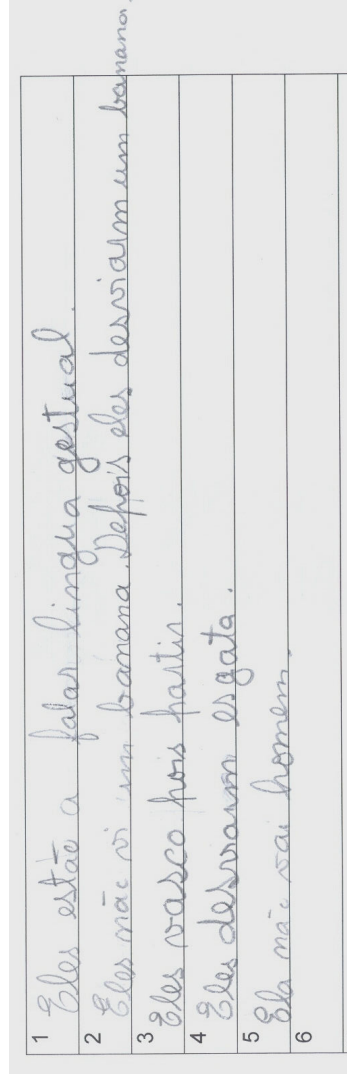 1 Eles estão a falar língua gestual.
2 Eles não vi um banana. Depois eles desviarm um banana.
3 Eles vasco pois partir.
4 Eles desviarm esgata.
5 Ela não vai homem.
6